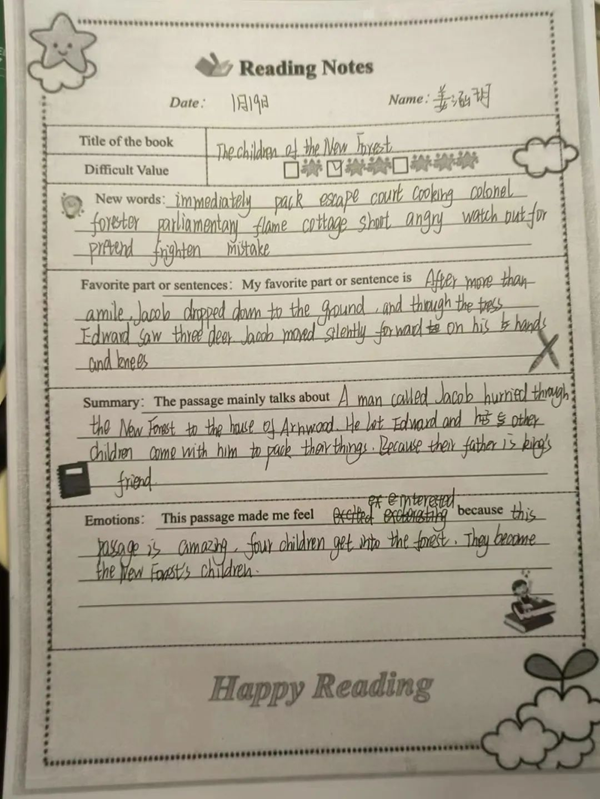 Reading Notes
Date: 1月19日 Name: 姜泓玥
Title of the book The children of the New Forest
Difficult Value
New words: immediately pack escape court cooking colonel
forester parliamentary flame cottage short angry watch out for
pretend frighten mistake
Favorite part or sentences: My favorite part or sentence is After more than
a mile, Jacob dropped down to the ground, and through the tress
Edward saw three deer. Jacob moved silently forward on his hands
and knees
Summary: The passage mainly talks about A man called Jacob hurried through
the New Forest to the house of Arnwood. He let Edward and his other
children come with him to pack their things. Because their father is king's
friend.
interested
Emotions: This passage made me feel because this
passage is amazing, four children get into the forest. They become
the New Forest's children.
Happy Reading